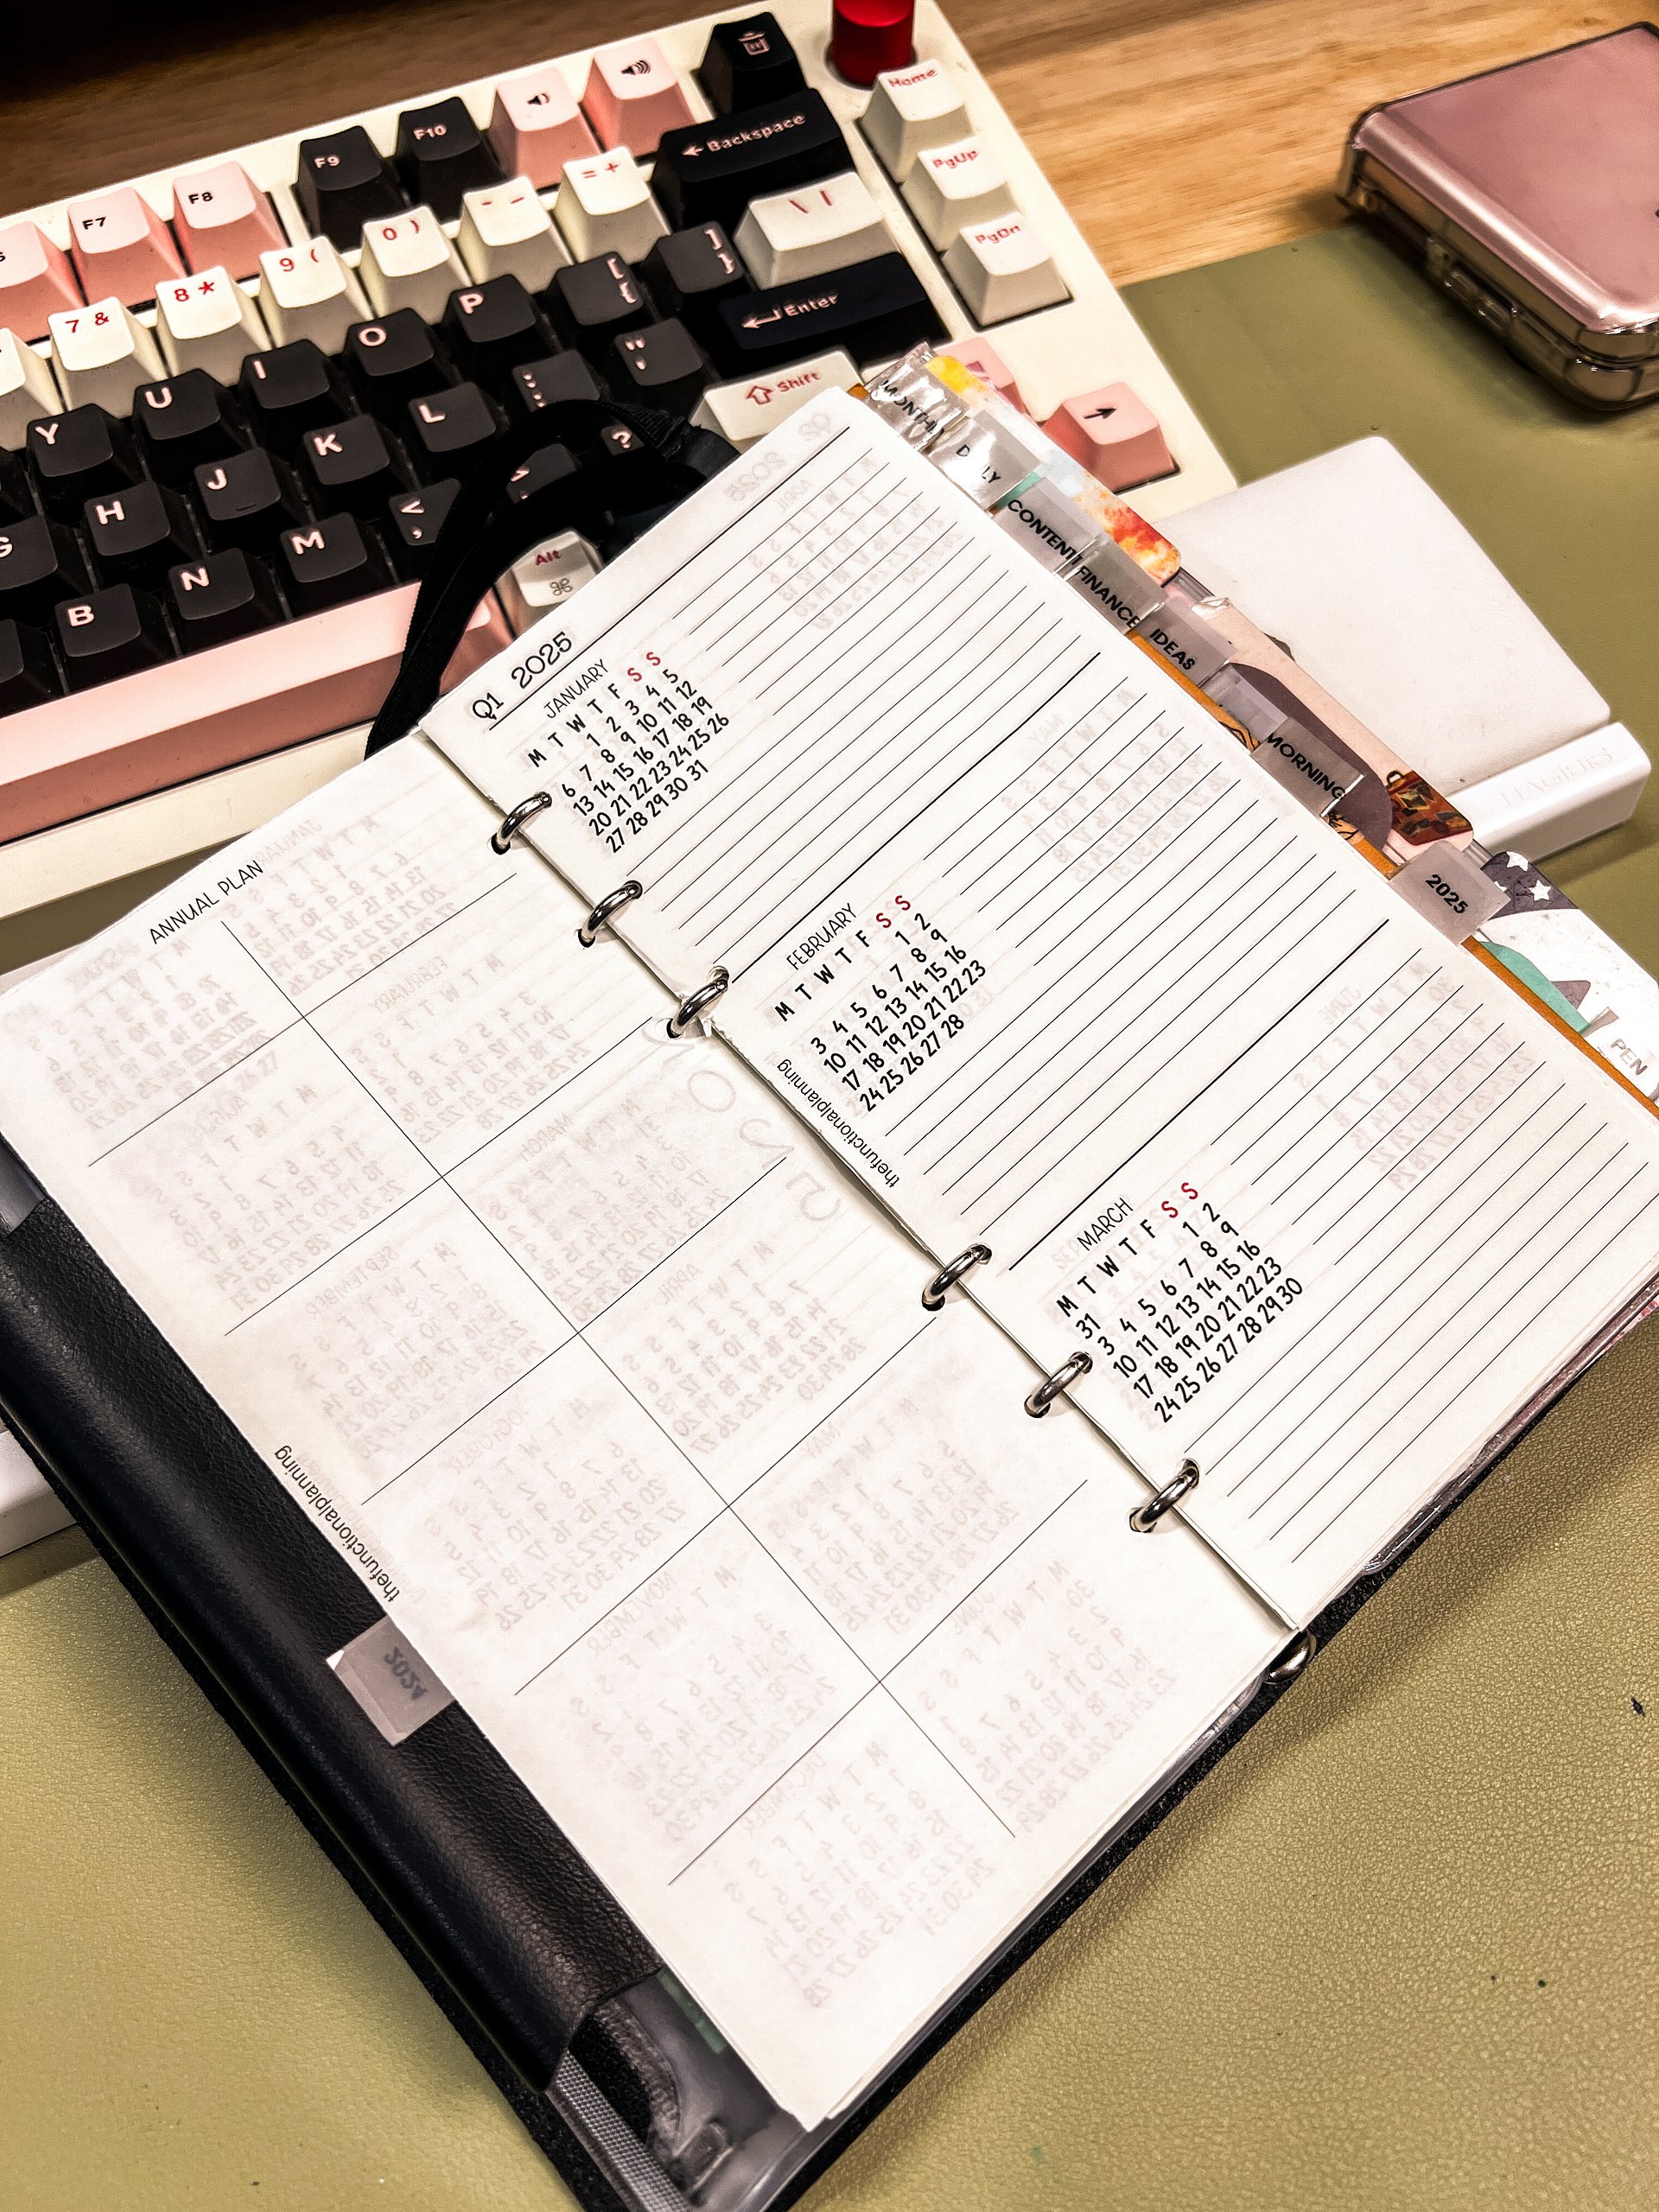 F7
F8
F9
F10
Home
← Backspace
PgUp
PgDn
7 &
8 *
9 (
0 )
- _
= +
\ |
Y
U
I
O
P
[ {
] }
← Enter
G
H
J
K
L
; :
' "
⇧ Shift
B
N
M
, <
?
Alt
⌘
→
MONTHLY
CONTENT
FINANCE
IDEAS
MORNING
2025
PEN
ANNUAL PLAN
thefunctionalplanning
2024
Q1 2025
JANUARY
M T W T F S S
1 2 3 4 5
6 7 8 9 10 11 12
13 14 15 16 17 18 19
20 21 22 23 24 25 26
27 28 29 30 31
FEBRUARY
M T W T F S S
1 2
3 4 5 6 7 8 9
10 11 12 13 14 15 16
17 18 19 20 21 22 23
24 25 26 27 28
thefunctionalplanning
MARCH
M T W T F S S
31 1 2
3 4 5 6 7 8 9
10 11 12 13 14 15 16
17 18 19 20 21 22 23
24 25 26 27 28 29 30